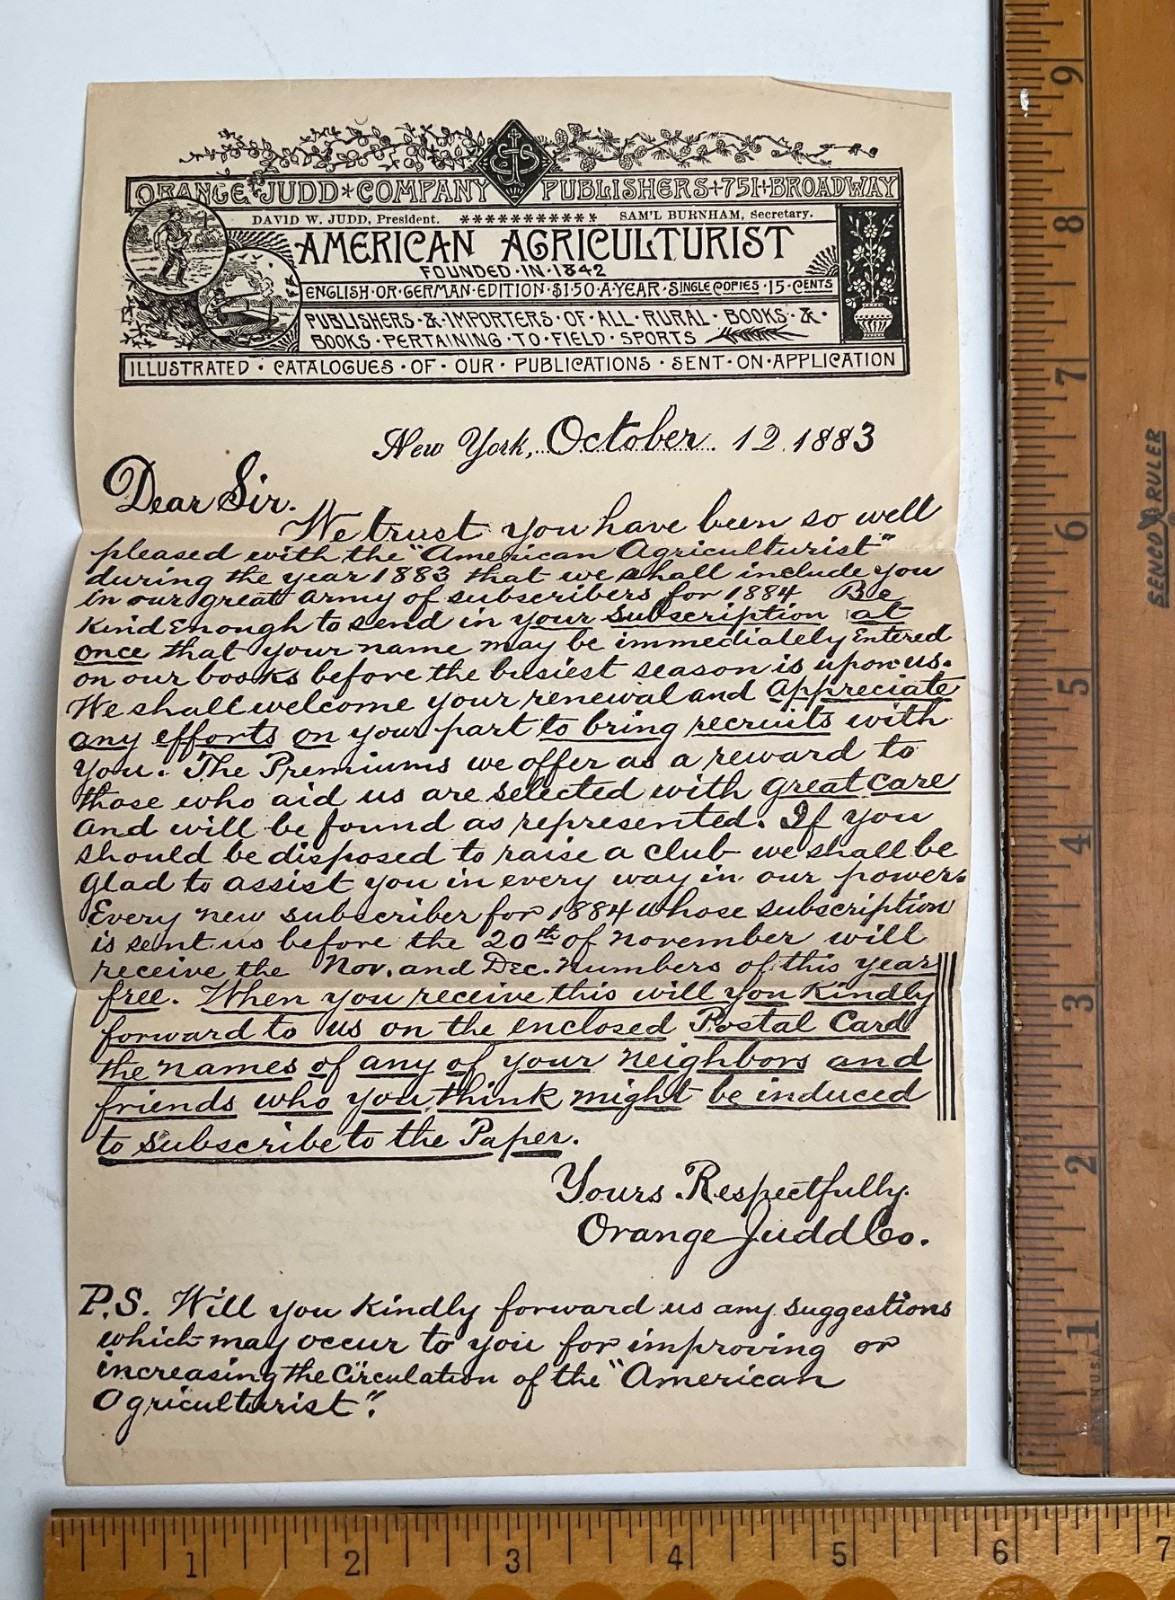 ORANGE JUDD * COMPANY PUBLISHERS + 751 + BROADWAY
DAVID W. JUDD, President. * * * * * * * * * * * SAM'L BURNHAM, Secretary.
AMERICAN AGRICULTURIST
FOUNDED · IN · 1842
ENGLISH · OR · GERMAN · EDITION · $1.50 · A · YEAR · SINGLE COPIES · 15 · CENTS
PUBLISHERS · & · IMPORTERS · OF · ALL · RURAL · BOOKS · & ·
BOOKS · PERTAINING · TO · FIELD · SPORTS
ILLUSTRATED · CATALOGUES · OF · OUR · PUBLICATIONS · SENT · ON · APPLICATION
New York, October. 12. 1883
Dear Sir.
We trust you have been so well
pleased with the "American Agriculturist"
during the year 1883 that we shall include you
in our great army of subscribers for 1884 Be
Kind Enough to send in your Subscription at
once that your name may be immediately Entered
on our books before the busiest season is upon us.
We shall welcome your renewal and Appreciate
any efforts on your part to bring recruits with
you. The Premiums we offer as a reward to
those who aid us are selected with great care
and will be found as represented. If you
should be disposed to raise a club we shall be
glad to assist you in every way in our power.
Every new subscriber for 1884 whose subscription
is sent us before the 20th of November will
receive the Nov. and Dec. numbers of this year
free. When you receive this will you Kindly
forward to us on the enclosed Postal Card
the names of any of your neighbors and
friends who you think might be induced
to subscribe to the Paper.
Yours Respectfully.
Orange Judd Co.
P.S. Will you Kindly forward us any suggestions
which may occur to you for improving or
increasing the Circulation of the "American
Agriculturist".
9
8
7
6
5
4
3
2
1
SENCO RULER
U.S.A.
1 2 3 4 5 6 7